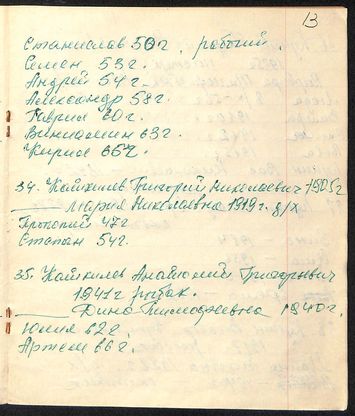 13
Станислав 50г. рабочий.
Семен 53г.
Андрей 54г.
Александр 58г.
Гаврил 60г.
Виниамин 63г.
Кирил 66г.
34. Григорий Николаевич 1905г
Мария Николаевна 1919г. д/х
Прокопий 47г.
Степан 54г.
35. Григорьевич
1941г рыбак.
Дина Тимофеевна 1940г.
Юлия 62г.
Артем 66г.